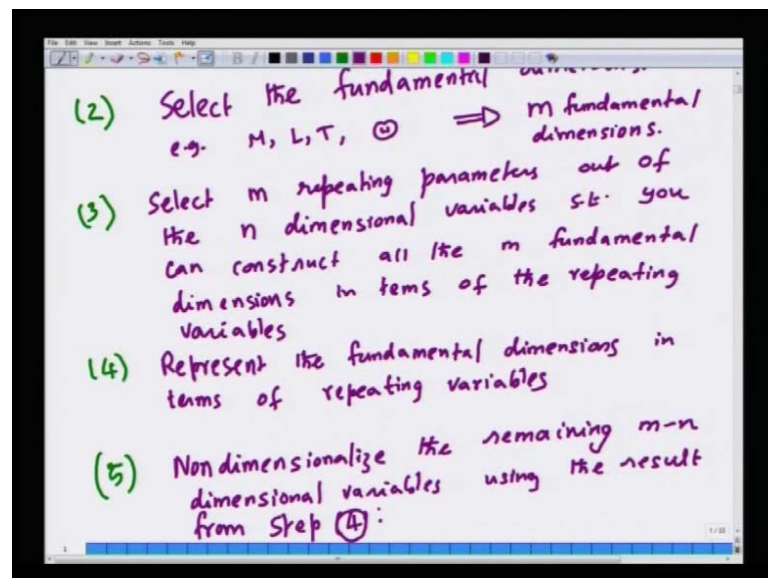 File Edit View Insert Actions Tools Help
(2) Select the fundamental dimensions.
e.g. M, L, T, Θ ⇒ m fundamental
dimensions.
(3) Select m repeating parameters out of
the n dimensional variables s.t. you
can construct all the m fundamental
dimensions in tems of the repeating
variables
(4) Represent the fundamental dimensions in
terms of repeating variables
(5) Nondimensionalize the remaining m-n
dimensional variables using the result
from Step 4:
1